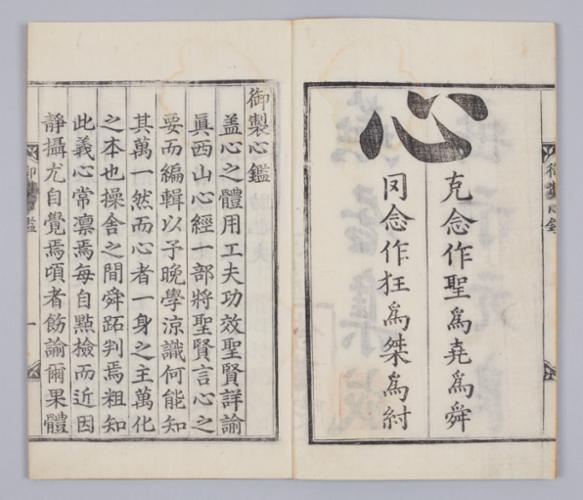 心
克念作聖爲堯爲舜
罔念作狂爲桀爲紂
御製心鑑
盖心之體用工夫功效聖賢詳諭
眞西山心經一部將聖賢言心之
要而編輯以予晩學涼識何能知
其萬一然而心者一身之主萬化
之本也操舍之間舜跖判焉粗知
此義心常凛焉每自點檢而近因
靜攝尤自覺焉頃者飭諭爾果體
御製心鑑
一